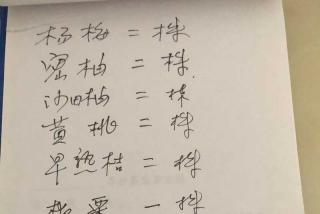 杨梅=株
密柚=株
沙田柚=株
黄桃=株
早熟桔=株
板栗一株